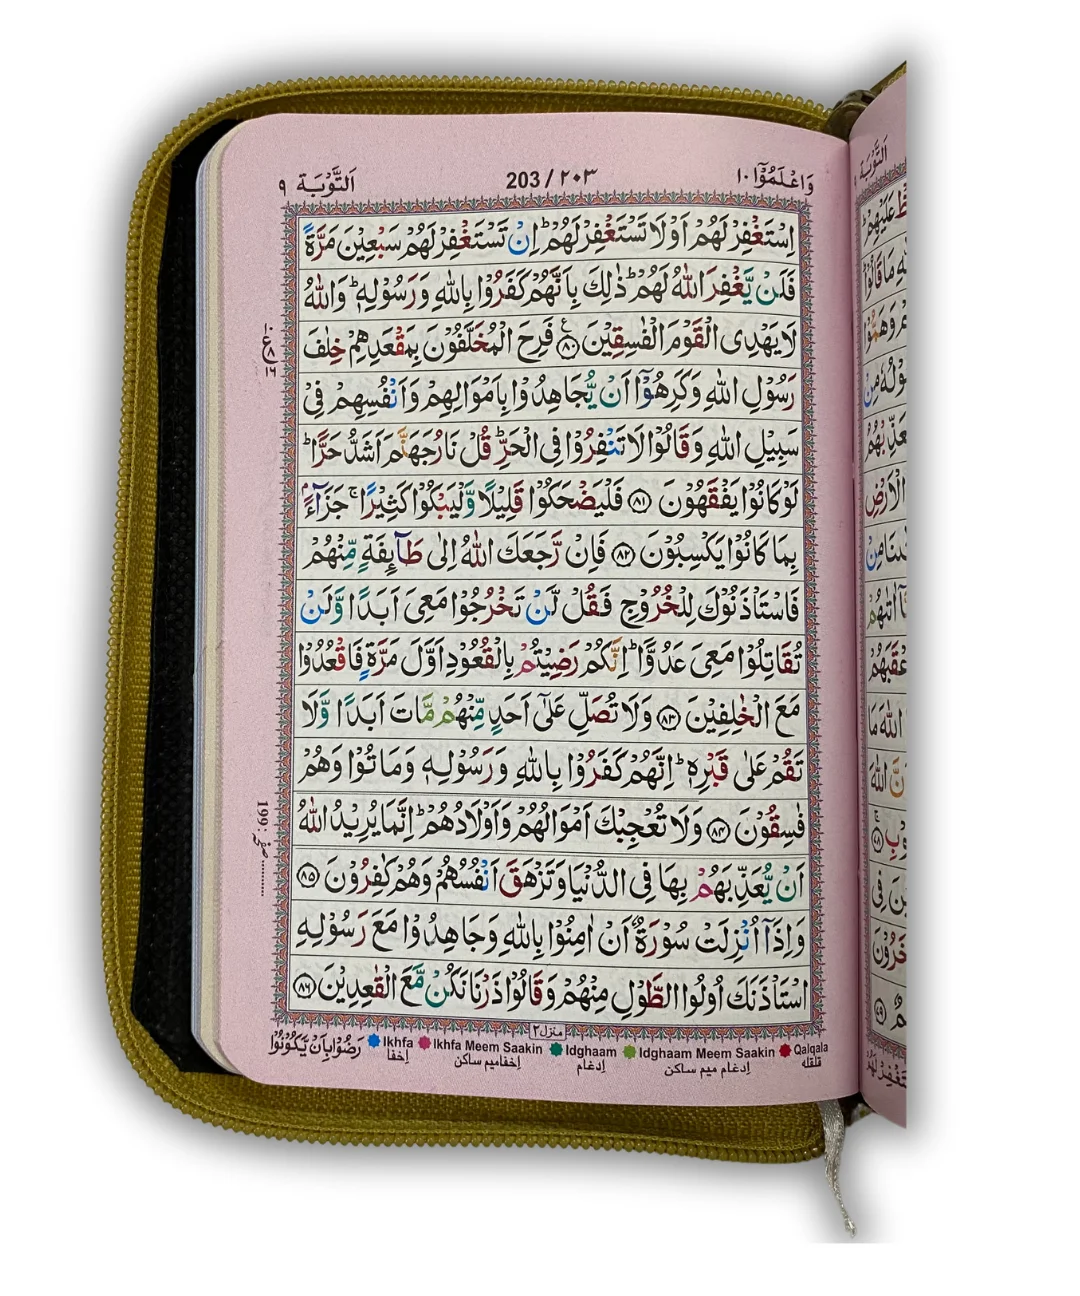 وَاعْلَمُوْٓا ١٠
203 / ٢٠٣
اَلتَّوْبَة ٩
اِسْتَغْفِرْ لَهُمْ اَوْ لَا تَسْتَغْفِرْ لَهُمْ ؕ اِنْ تَسْتَغْفِرْ لَهُمْ سَبْعِيْنَ مَرَّةً
فَلَنْ يَّغْفِرَ اللّٰهُ لَهُمْ ؕ ذٰلِكَ بِاَنَّهُمْ كَفَرُوْا بِاللّٰهِ وَ رَسُوْلِهٖ ؕ وَاللّٰهُ
لَا يَهْدِى الْقَوْمَ الْفٰسِقِيْنَ ۧ ﴿٨٠﴾ فَرِحَ الْمُخَلَّفُوْنَ بِمَقْعَدِهِمْ خِلٰفَ
رَسُوْلِ اللّٰهِ وَكَرِهُوْٓا اَنْ يُّجَاهِدُوْا بِاَمْوَالِهِمْ وَاَنْفُسِهِمْ فِىْ
سَبِيْلِ اللّٰهِ وَ قَالُوْا لَا تَنْفِرُوْا فِى الْحَرِّ ؕ قُلْ نَارُ جَهَنَّمَ اَشَدُّ حَرًّا ؕ
لَوْ كَانُوْا يَفْقَهُوْنَ ﴿٨١﴾ فَلْيَضْحَكُوْا قَلِيْلًا وَّلْيَبْكُوْا كَثِيْرًا ۚ جَزَآءًۢ
بِمَا كَانُوْا يَكْسِبُوْنَ ﴿٨٢﴾ فَاِنْ رَّجَعَكَ اللّٰهُ اِلٰى طَآئِفَةٍ مِّنْهُمْ
فَاسْتَاْذَنُوْكَ لِلْخُرُوْجِ فَقُلْ لَّنْ تَخْرُجُوْا مَعِىَ اَبَدًا وَّلَنْ
تُقَاتِلُوْا مَعِىَ عَدُوًّا ؕ اِنَّكُمْ رَضِيْتُمْ بِالْقُعُوْدِ اَوَّلَ مَرَّةٍ فَاقْعُدُوْا
مَعَ الْخٰلِفِيْنَ ﴿٨٣﴾ وَ لَا تُصَلِّ عَلٰٓى اَحَدٍ مِّنْهُمْ مَّاتَ اَبَدًا وَّلَا
تَقُمْ عَلٰى قَبْرِهٖ ؕ اِنَّهُمْ كَفَرُوْا بِاللّٰهِ وَ رَسُوْلِهٖ وَ مَاتُوْا وَهُمْ
فٰسِقُوْنَ ﴿٨٤﴾ وَ لَا تُعْجِبْكَ اَمْوَالُهُمْ وَاَوْلَادُهُمْ ؕ اِنَّمَا يُرِيْدُ اللّٰهُ
اَنْ يُّعَذِّبَهُمْ بِهَا فِى الدُّنْيَا وَتَزْهَقَ اَنْفُسُهُمْ وَهُمْ كٰفِرُوْنَ ﴿٨٥﴾
وَاِذَاۤ اُنْزِلَتْ سُوْرَةٌ اَنْ اٰمِنُوْا بِاللّٰهِ وَجَاهِدُوْا مَعَ رَسُوْلِهِ
اسْتَاْذَنَكَ اُولُوا الطَّوْلِ مِنْهُمْ وَ قَالُوْا ذَرْنَا نَكُنْ مَّعَ الْقٰعِدِيْنَ ﴿٨٦﴾
منزل٢
رَضُوْا بِاَنْ يَّكُوْنُوْا
Ikhfa Ikhfa Meem Saakin Idghaam Idghaam Meem Saakin Qalqala
إخفا إخفا ميم ساكن إدغام إدغام ميم ساكن قلقله
199